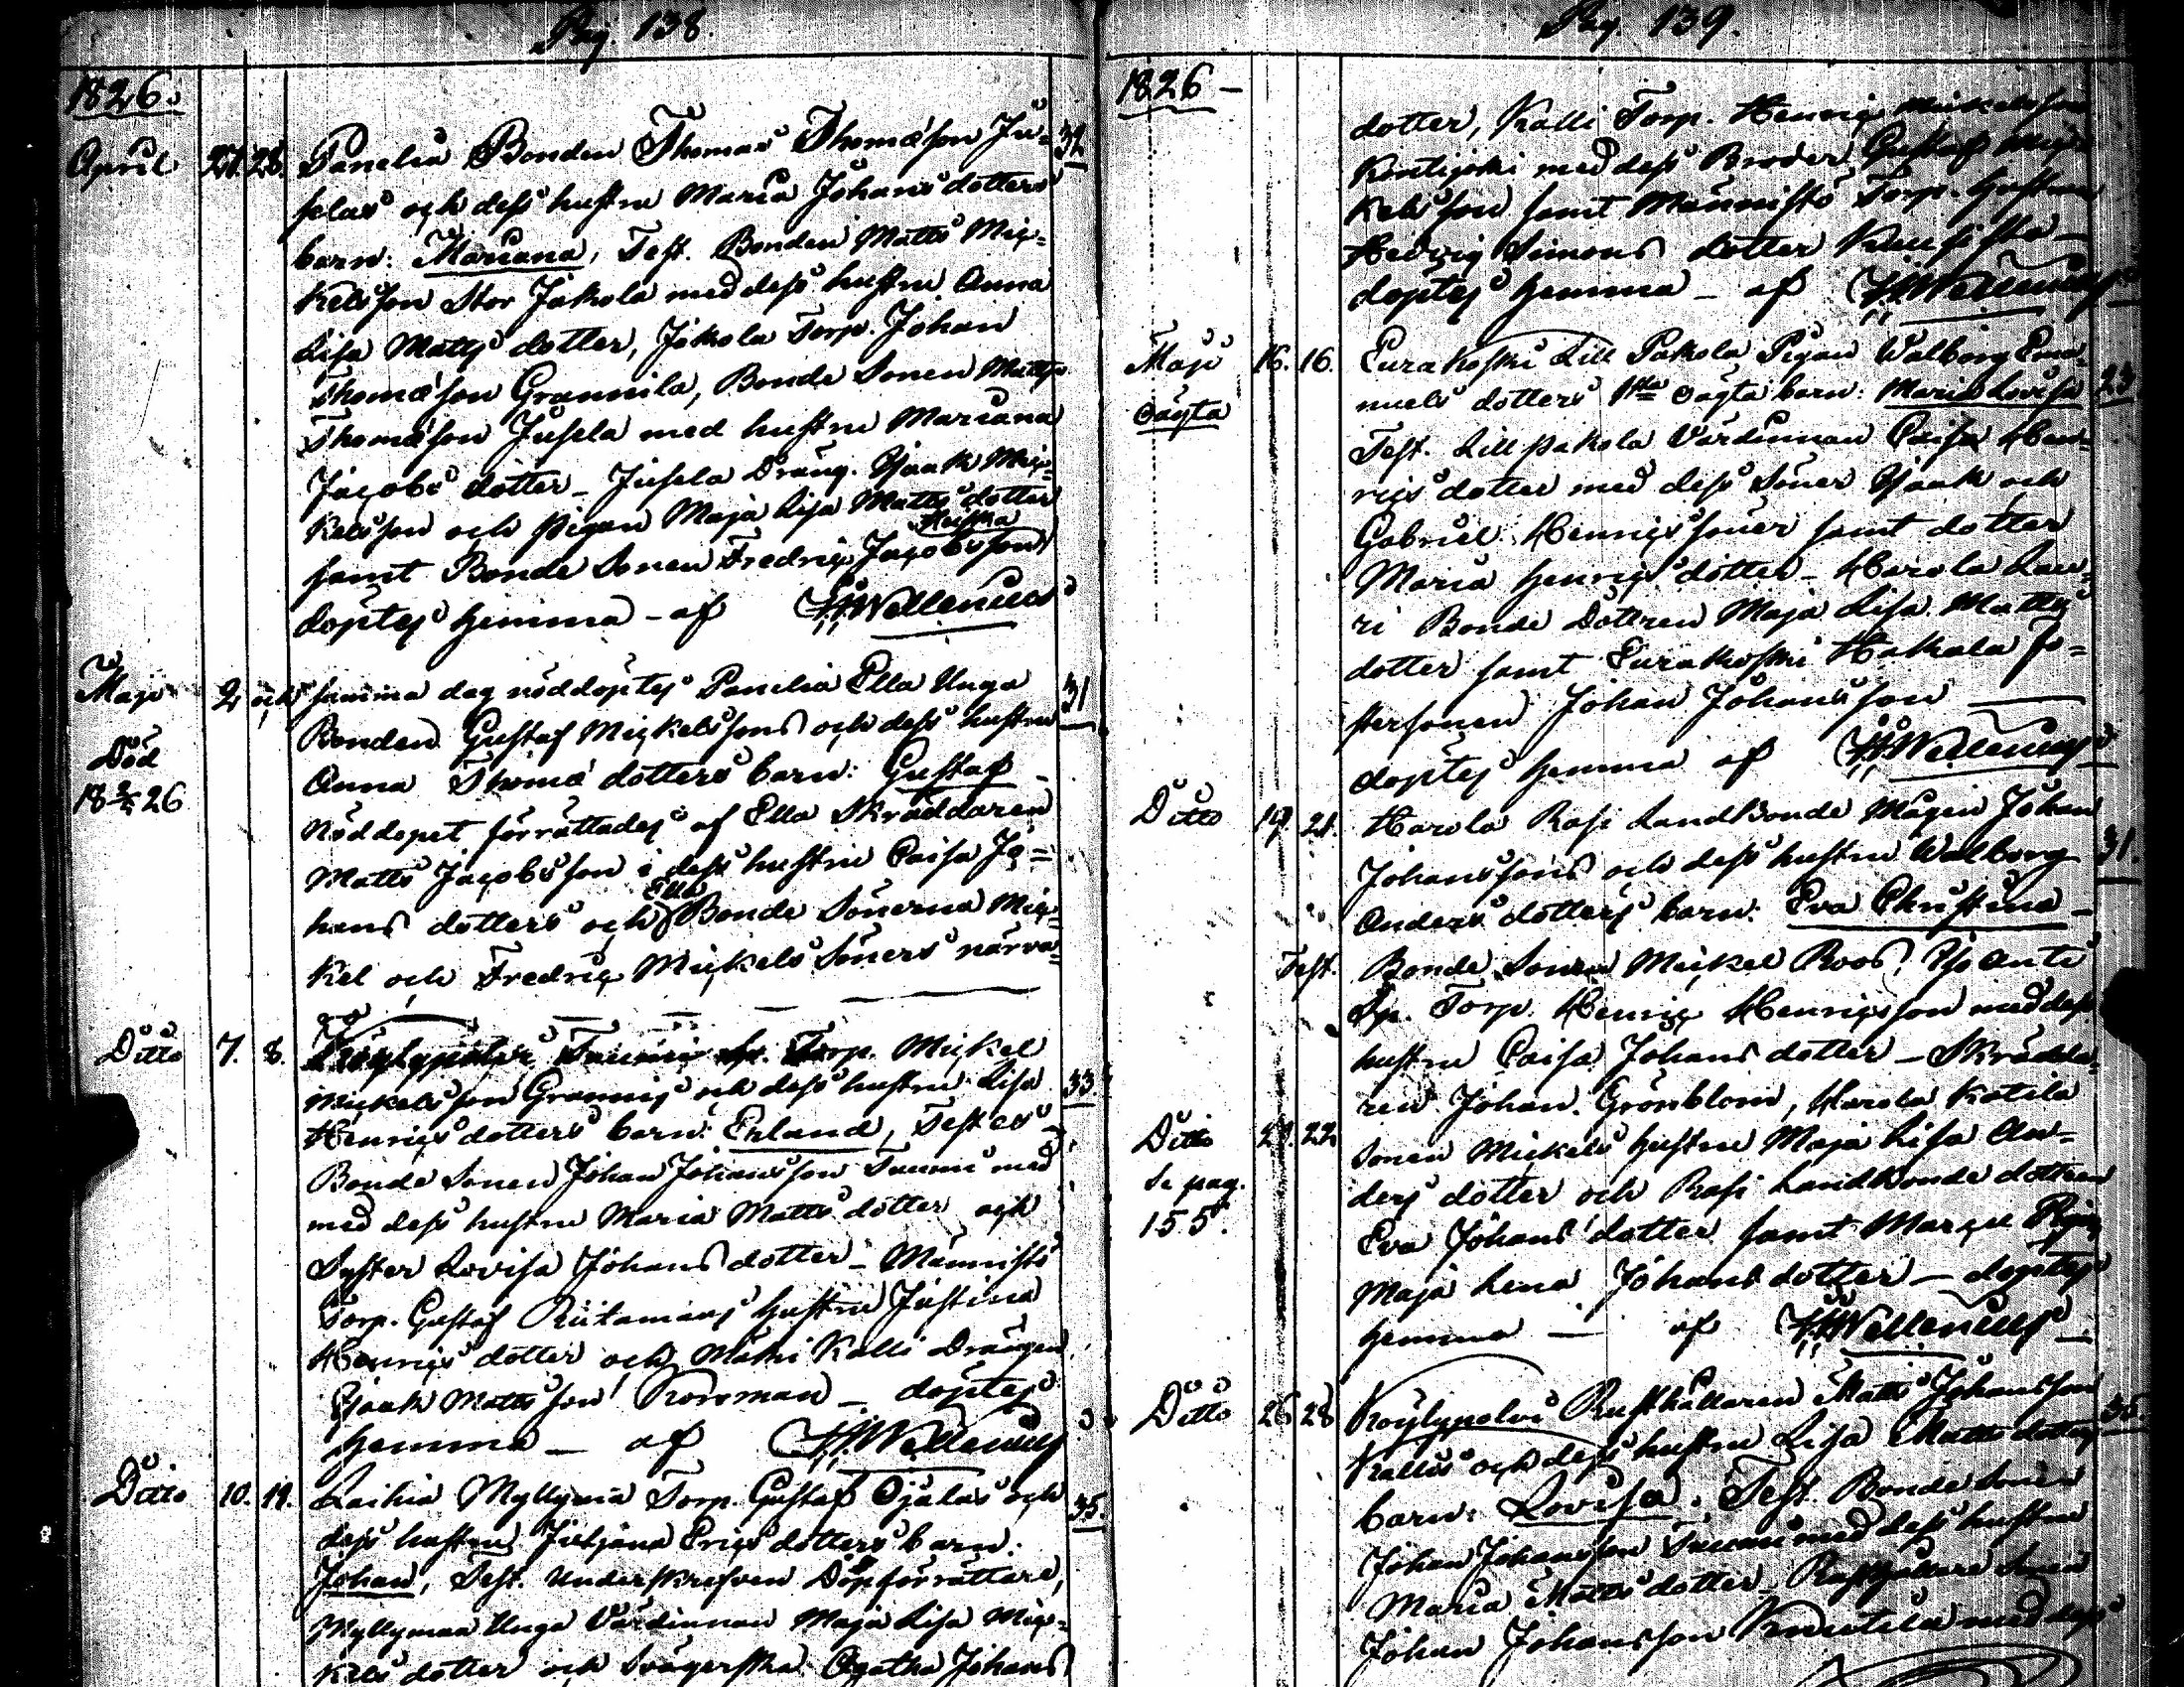 Pag. 138.
1826.
April 27. 28. Panelia Bonden Thomas Thomæson Ju= 32
selas och dess hustru Maria Johans dotters
barn: Mariana, Test. Bonden Matts Mic=
kelsson Stor Jakola med dess hustru Anna
Lisa Matts dotter, Jakola Torp. Johan
Thomæson Grannila, Bonde Sonen Matts
Thomæson Jusela med hustru Mariana
Jacobs dotter – Jusela Dräng. Isaak Mic=
kelsson och pigan Maja Lisa Matts dotter
samt Bonde Sonen Fredric Jacobsson
döptes hemma – af HHWellenius
Maji 2 och samma dag nöddöptes Panelia Ella Unga 31
Bonden Gustaf Mickelssons och dess hustru
Död
Anna Thomæ dotters barn: Gustaf –
18 26
Nöddopet förrättades af Ella Skräddaren
Matts Jacobsson i dess hustru Caisa Jo=
hans dotters och Ella Bonde Sönerna Mic=
kel och Fredric Mickels Söners närva=
Ditto 7. 8. Torp. Mickel
Mickelsson Grannis och dess hustru Lisa 33.
Henrics dotters barn: Erland, Testes –
Bonde Sonen Johan Johansson Tuomi med
med dess hustru Maria Matts dotter och
Syster Lovisa Johans dotter – Männistö
Torp. Gustaf Riitamaas hustru Justina
Henrics dotter och Mäki Kalli Drängen
Isaak Mattsson Korsman – döptes
hemma – af HHWellenius
Ditto 10. 14. Laihia Myllymaa Torp. Gustaf Ojalas och 35.
dess hustru Juljana Erics dotters barn:
Johan, Test. Underskrefven Döpförrättare,
Myllymaa Unga Värdinnan Maja Lisa Mic=
kels dotter och Svägerska Agatha Johans
Pag. 139.
1826 –
dotter, Kalli Torp. Henric Mickelsson
Kontijoki med dess Broder Gustaf Mic=
kelsson samt Männistö Torp. hustrun
Hedvig Simons dotter
döptes hemma – af HHWellenius
Maji 16. 16. Eurakoski Lill Pakola Pigan Walborg Ema=
oägta
nuels dotters 1sta oägta barn: Maria Lovisa 23
Test. Lill pakola Värdinnan Caisa Hen=
rics dotter med dess Söner Isaak och
Gabriel Henrics söner samt dotter
Maria Henrics dotter – Harola Lau=
ri Bonde Dottren Maja Lisa Matts
dotter samt Eurakoski Hakala Fo=
stersonen Johan Johansson
döptes hemma af HHWellenius
Ditto 19. 21. Harola Rasi Landbonde Mågen Johan
Johanssons och dess hustru Walborg 31.
Anders dotters barn: Eva Christina –
Test. Bonde Sonen Mickel Roos,
Sp. Torp. Henric Henricsson med dess
hustru Caisa Johans dotter – Skrädda=
ren Johan Grönblom, Harola Katila
Ditto 21. 22 Sonen Mickels hustru Maja Lisa An=
Se pag.
ders dotter och Rasi Landbonde dottren
155.
Eva Johans dotter samt
Maja Lena Johans dotter – döptes
hemma – af HHWellenius –
Ditto 26 28 Köylypolvi Rusthållaren Matts Johansson
Kallis och dess hustru Lisa Matts dotters
barn: Lovisa. Test. Bonde Sonen
Johan Johansson Tuomi med dess hustru
Maria Matts dotter – Rusthållare Sonen
Johan Johansson Knuutila med dess